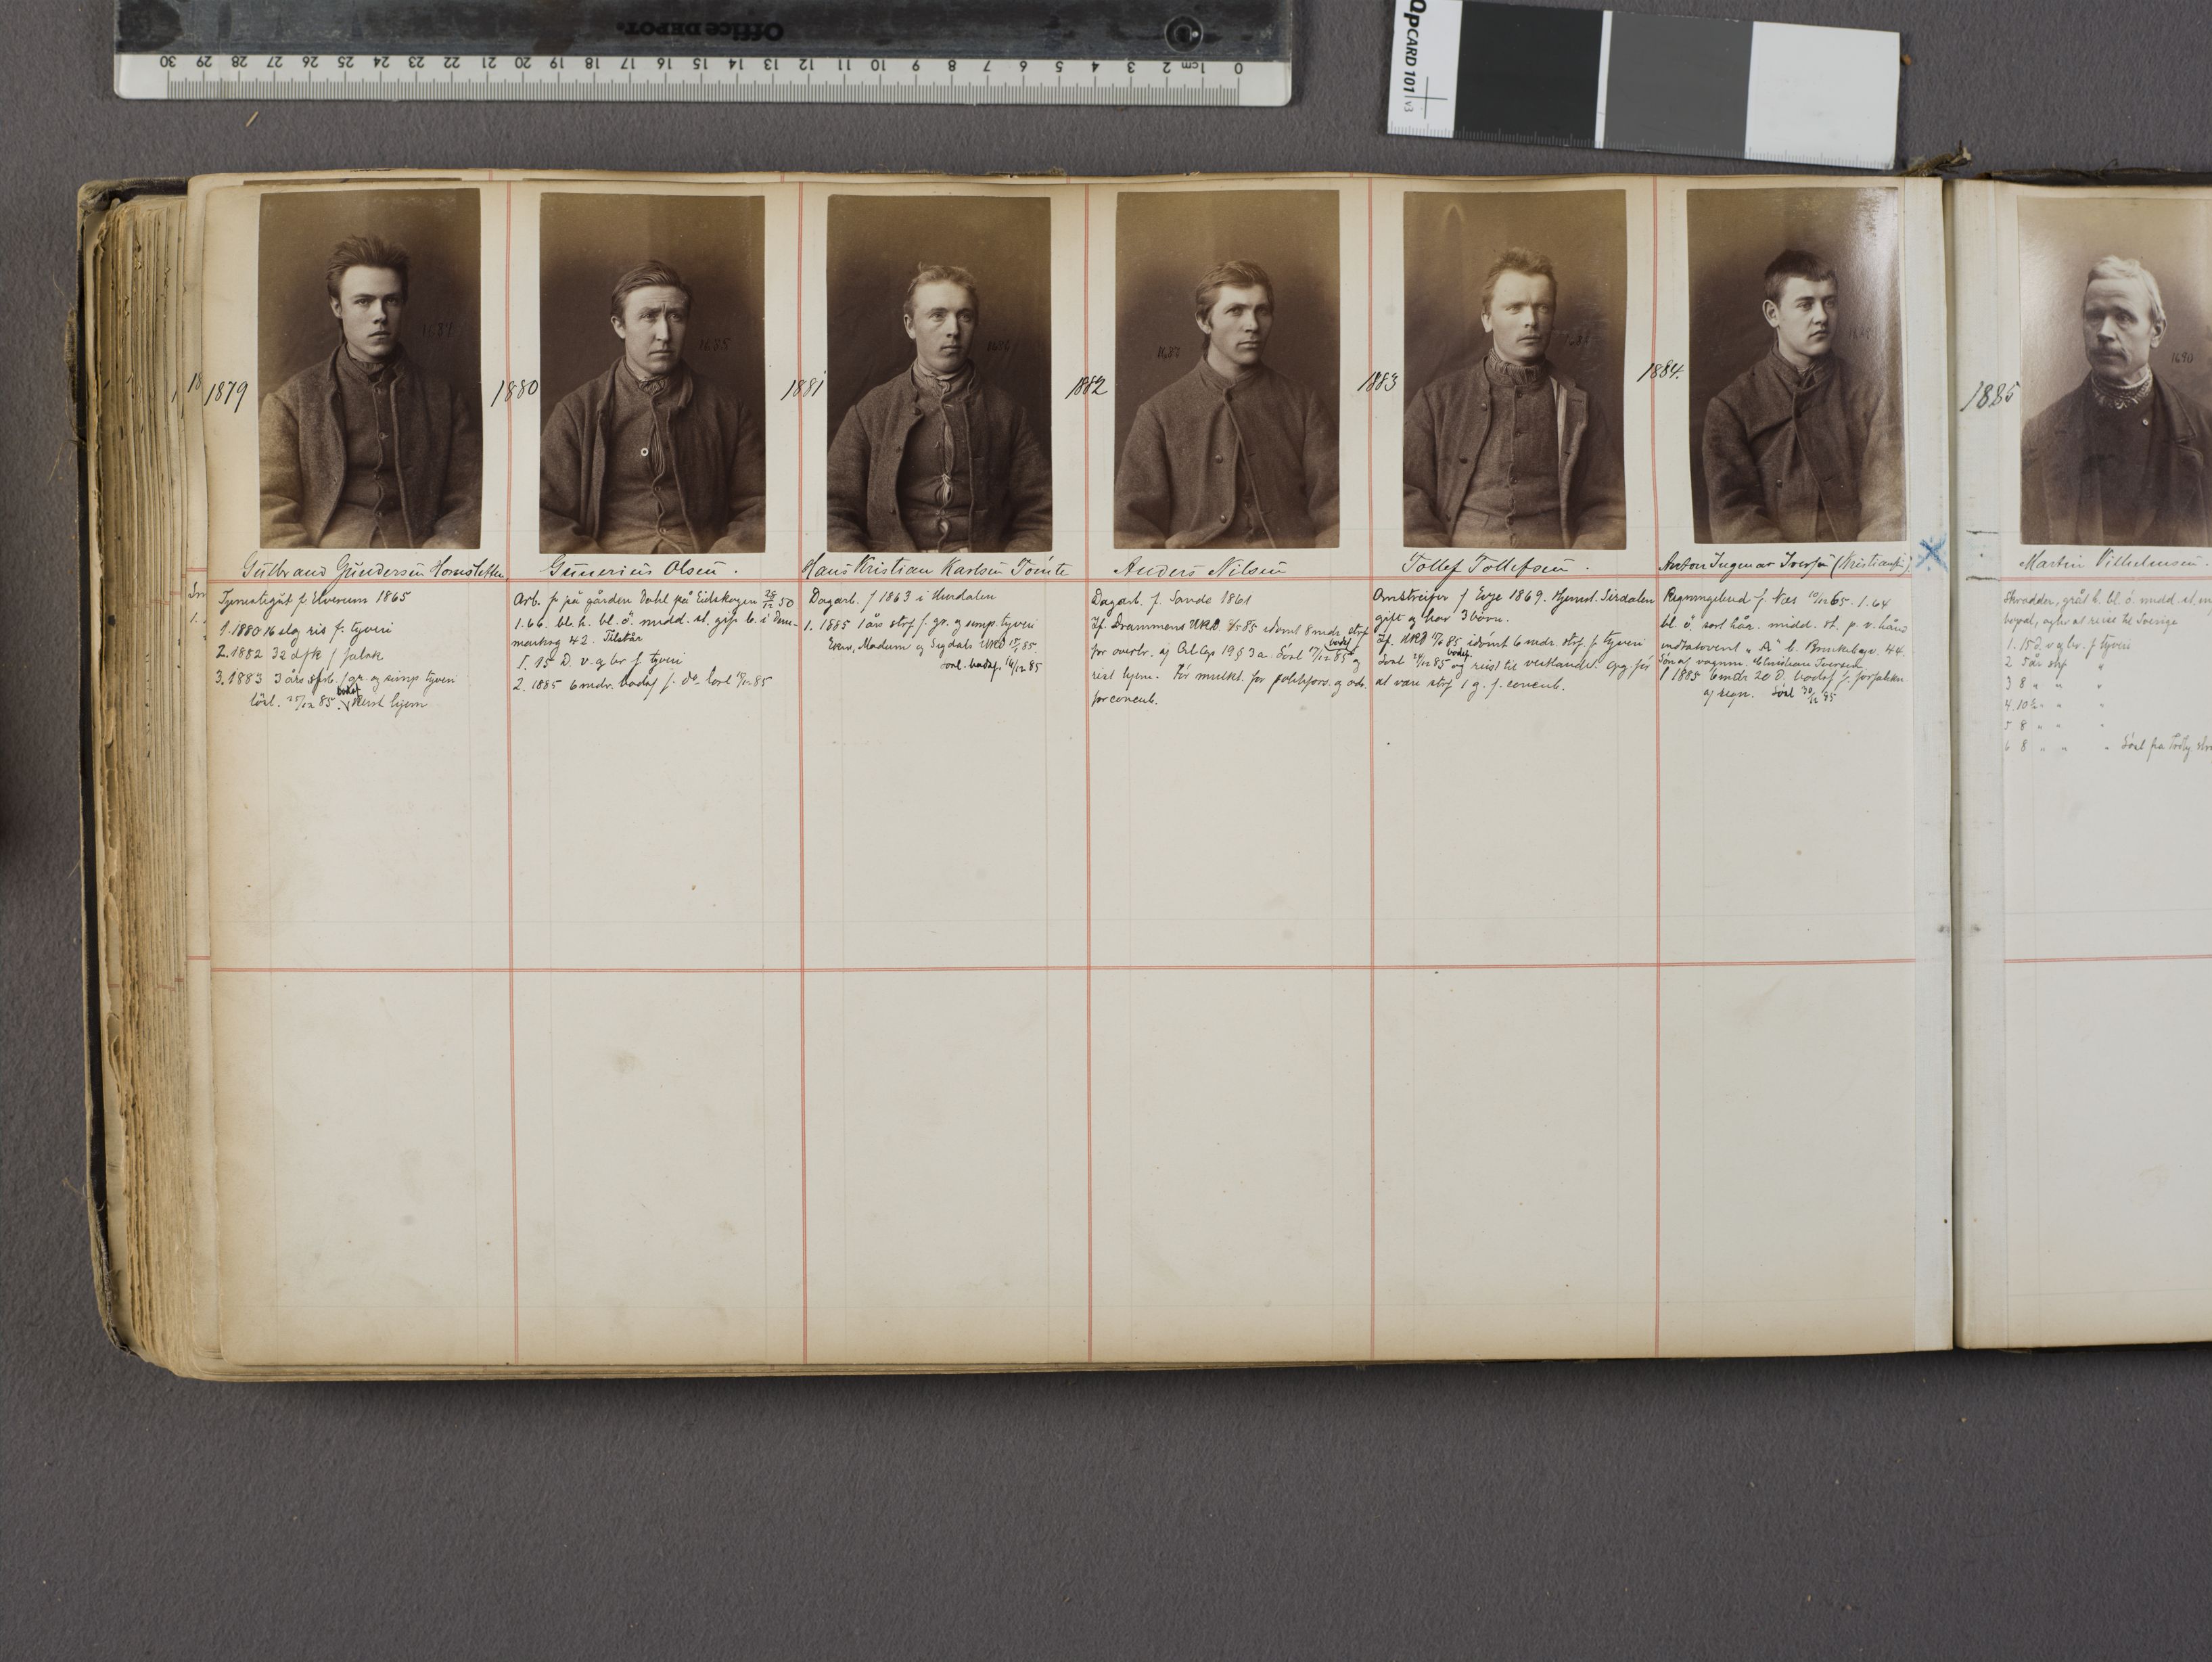 Office DEPOT.
0 1cm 2 3 4 5 6 7 8 9 10 11 12 13 14 15 16 17 18 19 20 21 22 23 24 25 26 27 28 29 30
QPCARD 101 v3
18
1879
1687
Gulbrand Gundersen
Tjenestegut f. Elverum 1865
1. 1880 16 slag ris f. tyveri
2. 1882 32 d f.
3. 1883 3 års f. gr. og simp tyveri
lösl. 25/12 85. Reist hjem
1880
1685
Gunerius Olsen.
Arb. f. på gården Dahl på Eidskogen 28/12 50
1.66. bl. h. bl. ö. midd. st. gift b. i
42. Tilstår
1. 15 D. v. q br f tyveri
2. 1885 6 mdr. bodsf f. do. lösl 85
1881
1686
Hans Kristian Karlsen Tömte
Dagarb. f 1863 i Hurdalen
1. 1885 1 års strf f. gr. og simp. tyveri
Eker, Modum og Sigdals 85.
lösl. bodsf. 16/12 85
1882
1687
Anders Nilsen
Dagarb. f. Sande 1861
If. Drammens 85 idömt 8 mdr. strf
for overtr. af 19 § 3 a. Lösl 17/12 85 bodsf og
reist hjem. För mulkt. for og
for concub.
1883
Tollef Tollefsen.
Omstreifer f Evje 1869. Hjemst. Sirdalen
gift og har 3 börn.
If. 85 idömt 6 mdr. strf. f. tyveri
Lösl 24/12 85 bodsf. og reist til vestlandet. Opg. för
at være strf 1 g. f. concub.
1884.
Anton Ingmar Iversen (Kristiansen)
Regningsbud f. Næs 10/12 65. 1.64
bl. ö. sort hår. midd. st. p. v. hånd
indtatoveret "A" b. 44.
Sön af vognm. Christian Iversen
1 1885 6 mdr 20 D. bodsf f.
af regn. Lösl 30/12 85
1885
1690
Martin Vilhelmsen.
Skrædder, gråt h. bl. ö. midd. st.
bopæl, agter at reise til Sverige
1. 15 d. v q br. f tyveri
2. 5 år strf "
3 8 " " "
4. 10 " " "
5 8 " " "
6 8 " " " Lösl fra